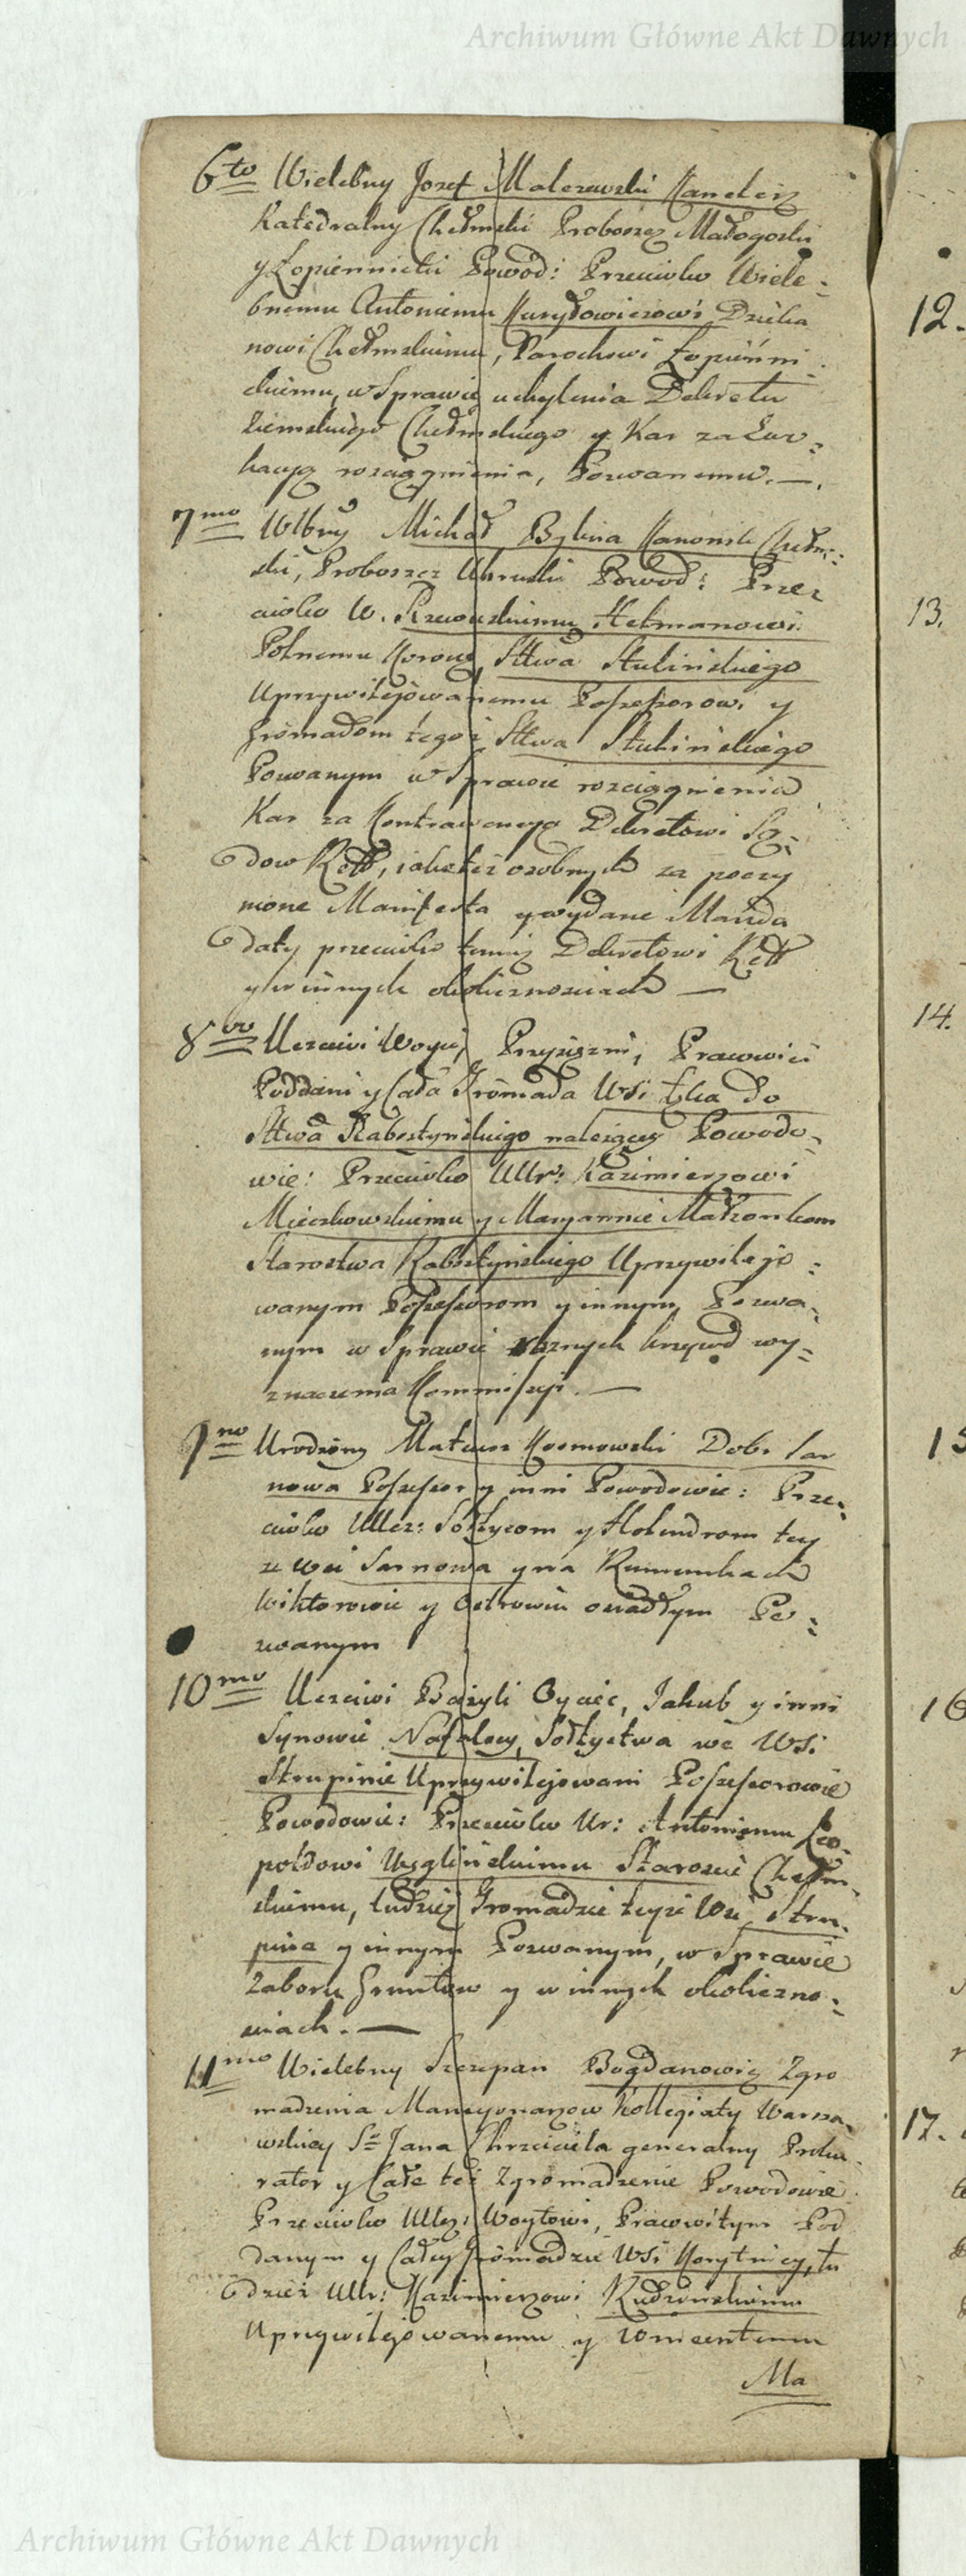 Archiwum Główne Akt Dawnych
6to Wielebny Jozef Malczewski Kanclerz
Katedralny Chełmski Proboszcz Małogoski
y Łopiennicki Powod: Przeciwko Wiele=
bnemu Antoniemu Kuryłowiczowi Dzieka
nowi Chełmskiemu, Parochowi Łopienni=
ckiemu, w Sprawie uchylenia Dekretu
Ziemskiego Chełmskiego y Kar za Ewo=
kacyą rozciągnienia, Pozwanemu.—.
7mo Wlbny Michał Bylina Kanonik Chełm=
ski, Proboszcz Uhruski Powod: Prze
ciwko W. Rzewuskiemu Hetmanowi
Polnemu Koron, Sttwa Stulińskiego
Uprzywilejowanemu Possessorowi y
Gromadom tegoż Sttwa Stulińskiego
Pozwanym w Sprawie rozciągnienia
Kar za Kontrawencyą Dekretowi Są=
dow Reff, iako też osobnych za poczy
nione Manifesta y wydane Manda
daty przeciwko temuż Dekretowi Reff
y w innych okolicznosciach —
8vo Uczciwi Woyci, Przysiężni, Prawowici
Poddani y Cała Gromada Wsi do
Sttwa Rabsztyńskiego należącey Powodo=
wie: Przeciwko UUr: Kazimierzowi
Mieszkowskiemu y Maryannie Małżonkom
Starostwa Rabsztyńskiego Uprzywilejo=
wanym Possessorom y innym, Pozwa=
nym w Sprawie roznych krzywd wy=
znaczenia Kommissyi.—
9no Urodzony Mateusz Kosmowski Dobr Sar
nowa Possessor y inni Powodowie: Prze=
ciwko UUcz: Sołtysom y Holendrom tey
ze Wsi Sarnowa y na Rumunkach
Wiktorowie y Ostrowiu osiadłym Po=
zwanym
10mo Uczciwi Bazyli Oyciec, Jakub y inni
Synowie Nafalscy, Sołtystwa we Wsi
Strupinie Uprzywilejowani Possessorowie
Powodowie: Przeciwko Ur: Antoniemu Leo=
poldowi Węglińskiemu Staroscie Chełm=
skiemu, tudzież Gromadzie teyże Wsi Stru=
pina y innym Pozwanym, w Sprawie
Zaboru Gruntow y w innych okoliczno=
sciach.—
11mo Wielebny Szczepan Bogdanowicz Zgro
madzenia Mansyonarzow Kollegiaty Warsza=
wskiey Sgo Jana Chrzciciela generalny Proku=
rator y Całe też Zgromadzenie Powodowie
Przeciwko UUcz: Woytowi, Prawowitym Pod
danym y Całey Gromadzie Wsi Korytnicy, tu
dzież UUr: Kazimierzowi Rudzinskiemu
Uprzywilejowanemu y Wincentemu
Ma
12.
13.
14.
15
16
17.
Archiwum Główne Akt Dawnych